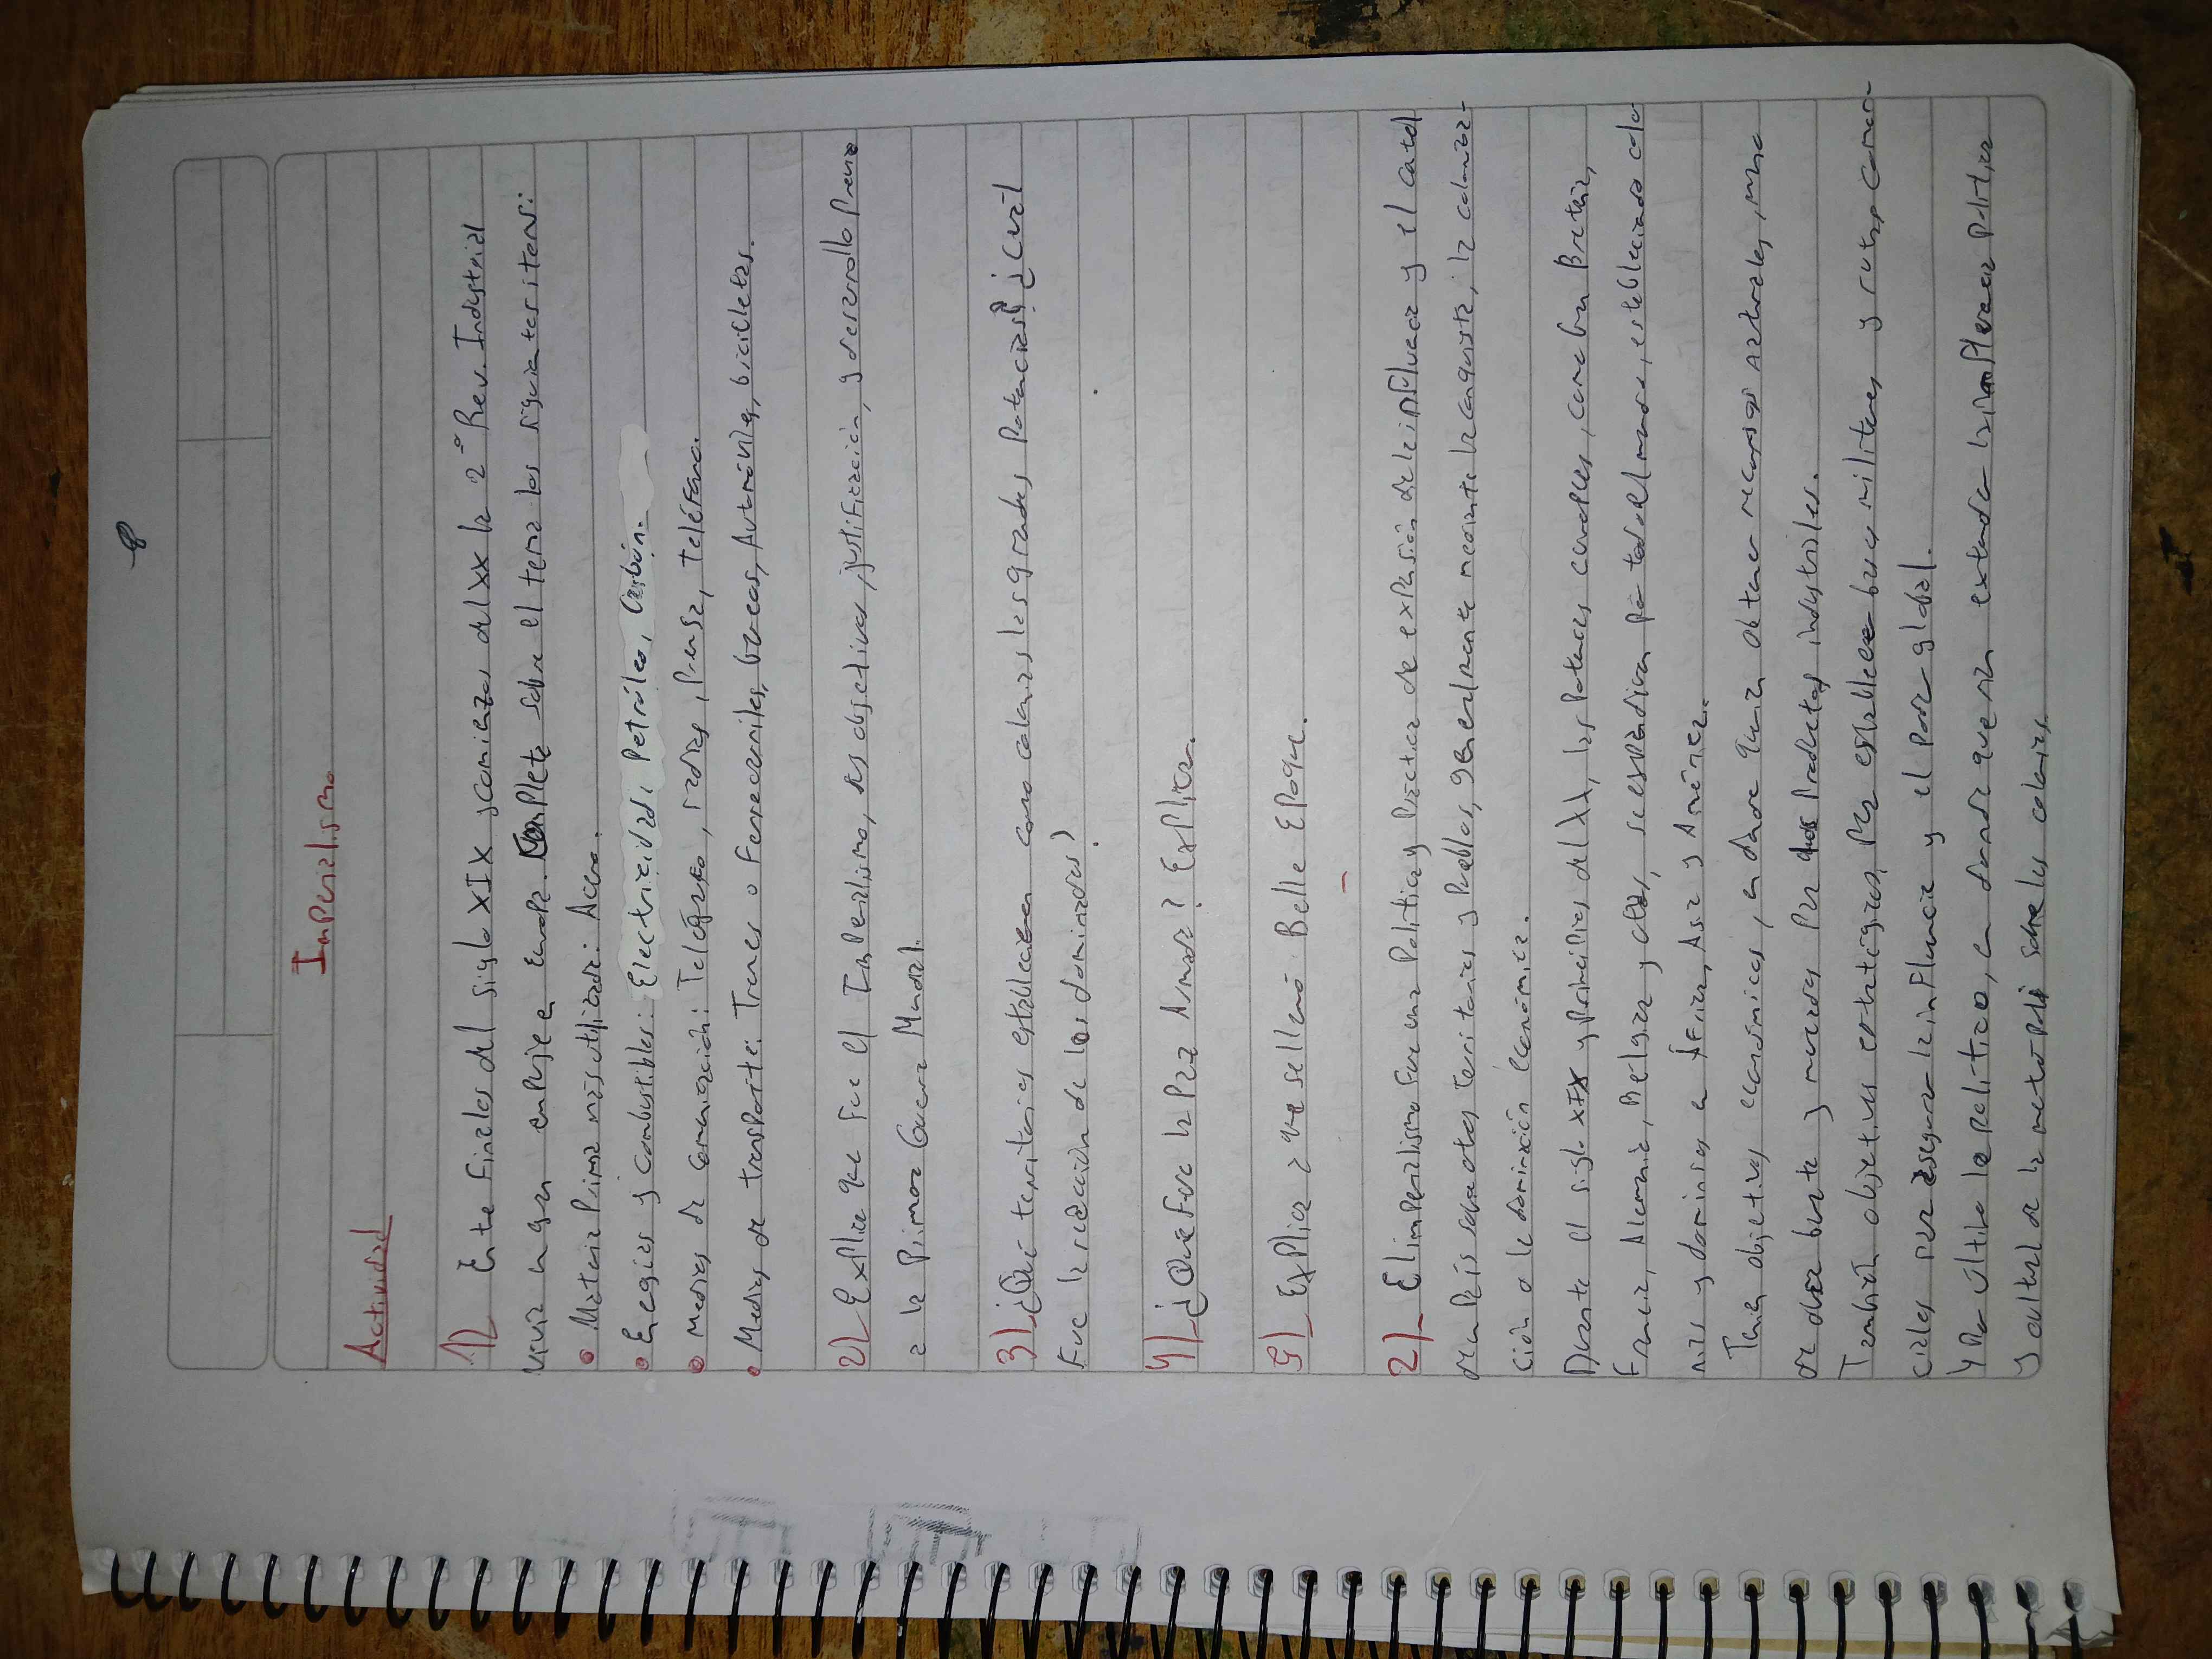 Imperialismo
Actividad
1) Entre finales del siglo XIX y comienzos del XX la 2° Rev. Industrial
vivía un gran empuje en europa. Complete sobre el tema los siguientes items:
• Materia Prima más utilizada: Acero.
• Energías y Combustibles: Electricidad, Petróleo, Carbón.
• Medios de comunicación: Telégrafo, radios, Prensa, Teléfono.
• Medios de transporte: Trenes o Ferrocarriles, barcos, Automóviles, bicicletas.
2)_ Explica que fue el Imperialismo, sus objectivos, justificación, y desarrollo Previo
a la Primera Guerra Mundial.
3)_ ¿Qué territorios establecieron como colonias las grandes Potencias? ¿Cuál
Fue la reacción de los dominados?
4)_ ¿Qué Fue la Paz Armada? Explica.
5)_ Explica a que se llamó Belle Epoque.
2)_ El imperialismo fue una Política y Práctica de expansión de la influencia y el control
de un País sobre otros Territorios y Pueblos, generalmente mediante la conquista, la coloniza-
ción o la dominación económica.
Durante el siglo XIX y Principios del XX, las Potencias europeas, como Gran Bretaña,
Francia, Alemania, Belgica y otras, se expandieron Por todo el mundo, estableciendo colo-
nias y dominios en África, Asia y América.
Tenian objetivos económicos, en donde querian obtener recursos naturales, mano
de obra barata y mercados Para sus Productos industriales.
También objetivos estratégicos, Para establecer bases militares y rutas comer-
ciales para asegurar la influencia y el Poder global.
Y Por último la política, en donde querian extender la influencia Política
y cultural de la metrópoli sobre las colonias.